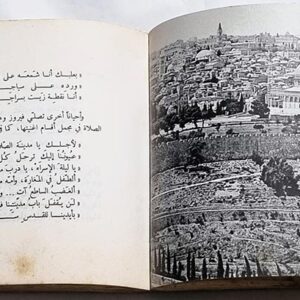 «بعلبك أنا شمعة على
وردة على سياج
أنا نقطة زيت بسراج
وأحيانا أخرى تصلي فيروز
الصلاة في مجمل أقسام أغنيتها، كما
«لأجلك يا مدينة
عيوننا إليك ترحل كل
يا ليلة الإسراء، يا درب
«الطفل في المغارة، وأمه
«الغضب الساطع آت ...
«لن يقفل باب مدينتنا
«بأيدينا للقدس